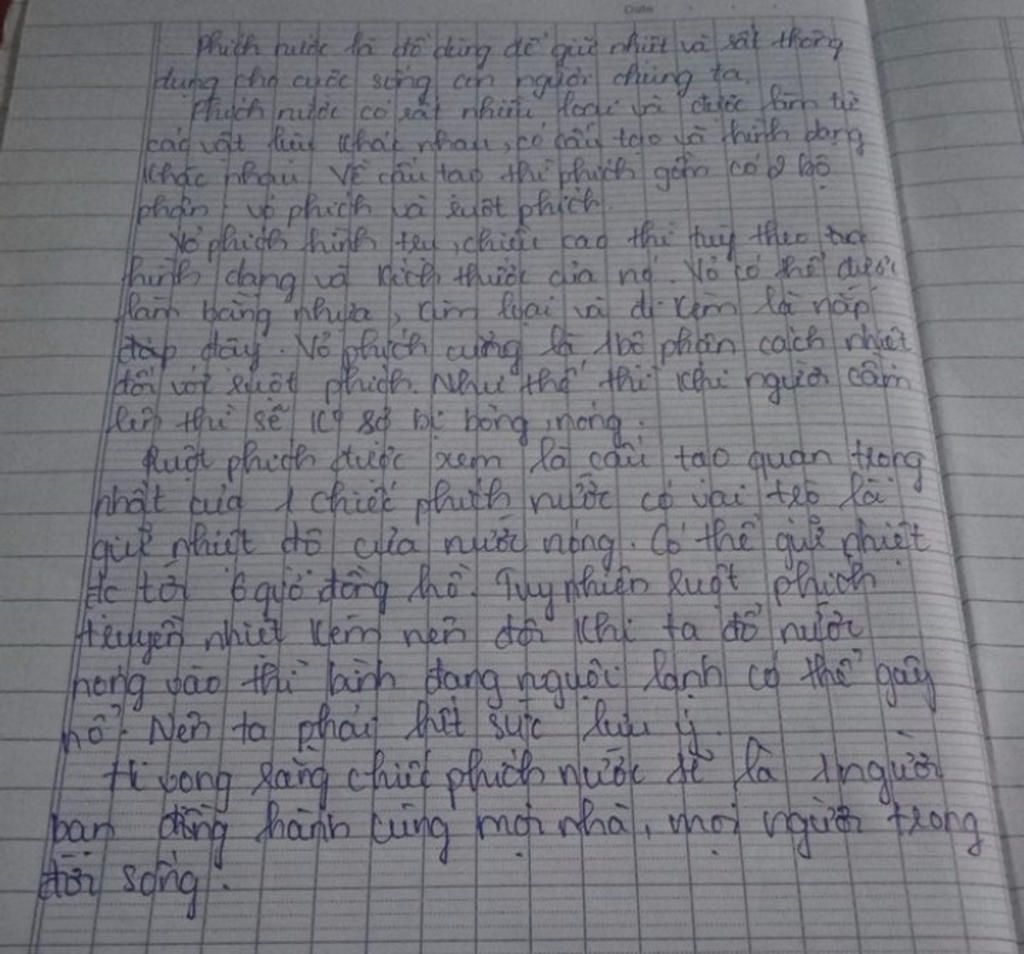 Phích nước là đồ dùng để giữ nhiệt và rất thông
dụng cho cuộc sống con người chúng ta.
Phích nước có rất nhiều loại và được làm từ
các vật liệu khác nhau, có cấu tạo và hình dạng
khác nhau. Về cấu tạo thì phích gồm có 2 bộ
phận: vỏ phích và ruột phích.
Vỏ phích hình trụ, chiều cao thì tuỳ theo
hình dạng và kích thước của nó. Vỏ có thể được
làm bằng nhựa, kim loại và đi kèm là nắp
đáp đậy. Vỏ phích cũng là 1 bộ phận cách nhiệt
đối với ruột phích. Như thế thì khi người cầm
lên thì sẽ k sợ bị bỏng, nóng.
Ruột phích được xem là cấu tạo quan trọng
nhất của 1 chiếc phích nước có vai trò là
giữ nhiệt độ của nước nóng. Có thể giữ nhiệt
đc tới 6 giờ đồng hồ. Tuy nhiên ruột phích
truyền nhiệt kém nên đôi khi ta đổ nước
nóng vào thì bình đang nguội lạnh có thể gây
nổ. Nên ta phải hết sức lưu ý.
Hi vọng rằng chiếc phích nước sẽ là 1 người
bạn đồng hành cùng mọi nhà, mọi người trong
đời sống.